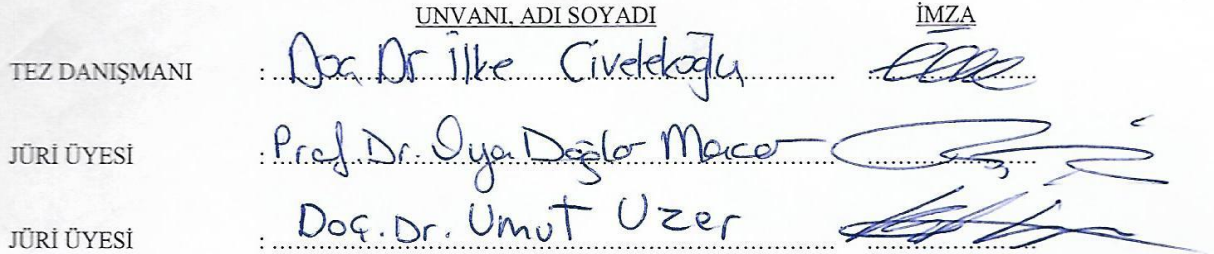 UNVANI, ADI SOYADI İMZA
TEZ DANIŞMANI : Doç. Dr İlke Civelekoğlu
JÜRİ ÜYESİ : Prof. Dr. Oya Dağlar Macar
JÜRİ ÜYESİ : Doç. Dr. Umut Uzer